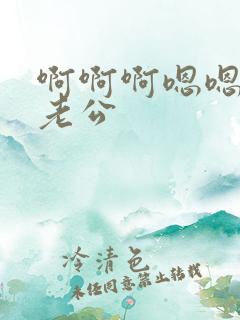 啊啊啊嗯嗯
老公
冷清色
未经同意禁止转载